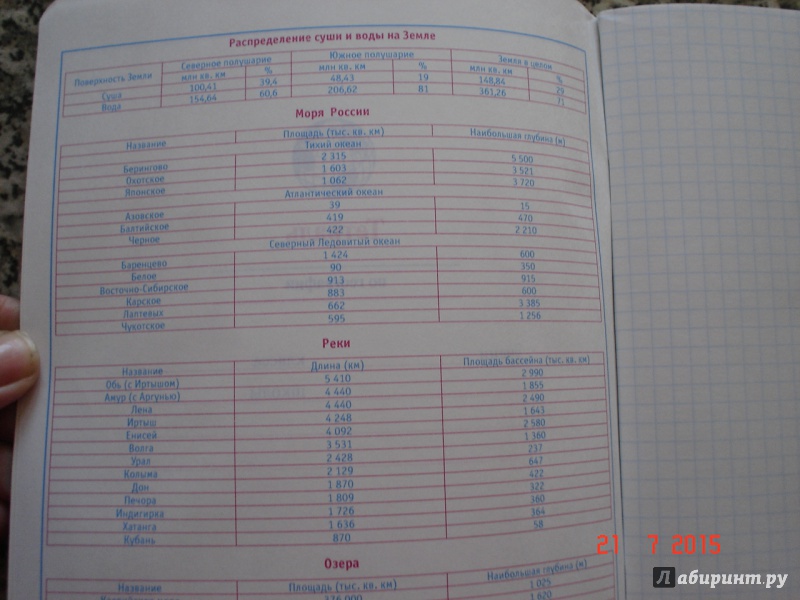 Распределение суши и воды на Земле
Поверхность Земли Северное полушарие Южное полушарие Земля в целом
млн кв. км % млн кв. км % млн кв. км %
Суша 100,41 39,4 48,43 19 148,84 29
Вода 154,64 60,6 206,62 81 361,26 71
Моря России
Название Площадь (тыс. кв. км) Наибольшая глубина (м)
Тихий океан
Берингово 2 315 5 500
Охотское 1 603 3 521
Японское 1 062 3 720
Атлантический океан
Азовское 39 15
Балтийское 419 470
Черное 422 2 210
Северный Ледовитый океан
Баренцево 1 424 600
Белое 90 350
Восточно-Сибирское 913 915
Карское 883 600
Лаптевых 662 3 385
Чукотское 595 1 256
Реки
Название Длина (км) Площадь бассейна (тыс. кв. км)
Обь (с Иртышом) 5 410 2 990
Амур (с Аргунью) 4 440 1 855
Лена 4 440 2 490
Иртыш 4 248 1 643
Енисей 4 092 2 580
Волга 3 531 1 360
Урал 2 428 237
Колыма 2 129 647
Дон 1 870 422
Печора 1 809 322
Индигирка 1 726 360
Хатанга 1 636 364
Кубань 870 58
Озера
Название Площадь (тыс. кв. км) Наибольшая глубина (м)
376 000 1 025
1 620
21 7 2015
Лабиринт.ру